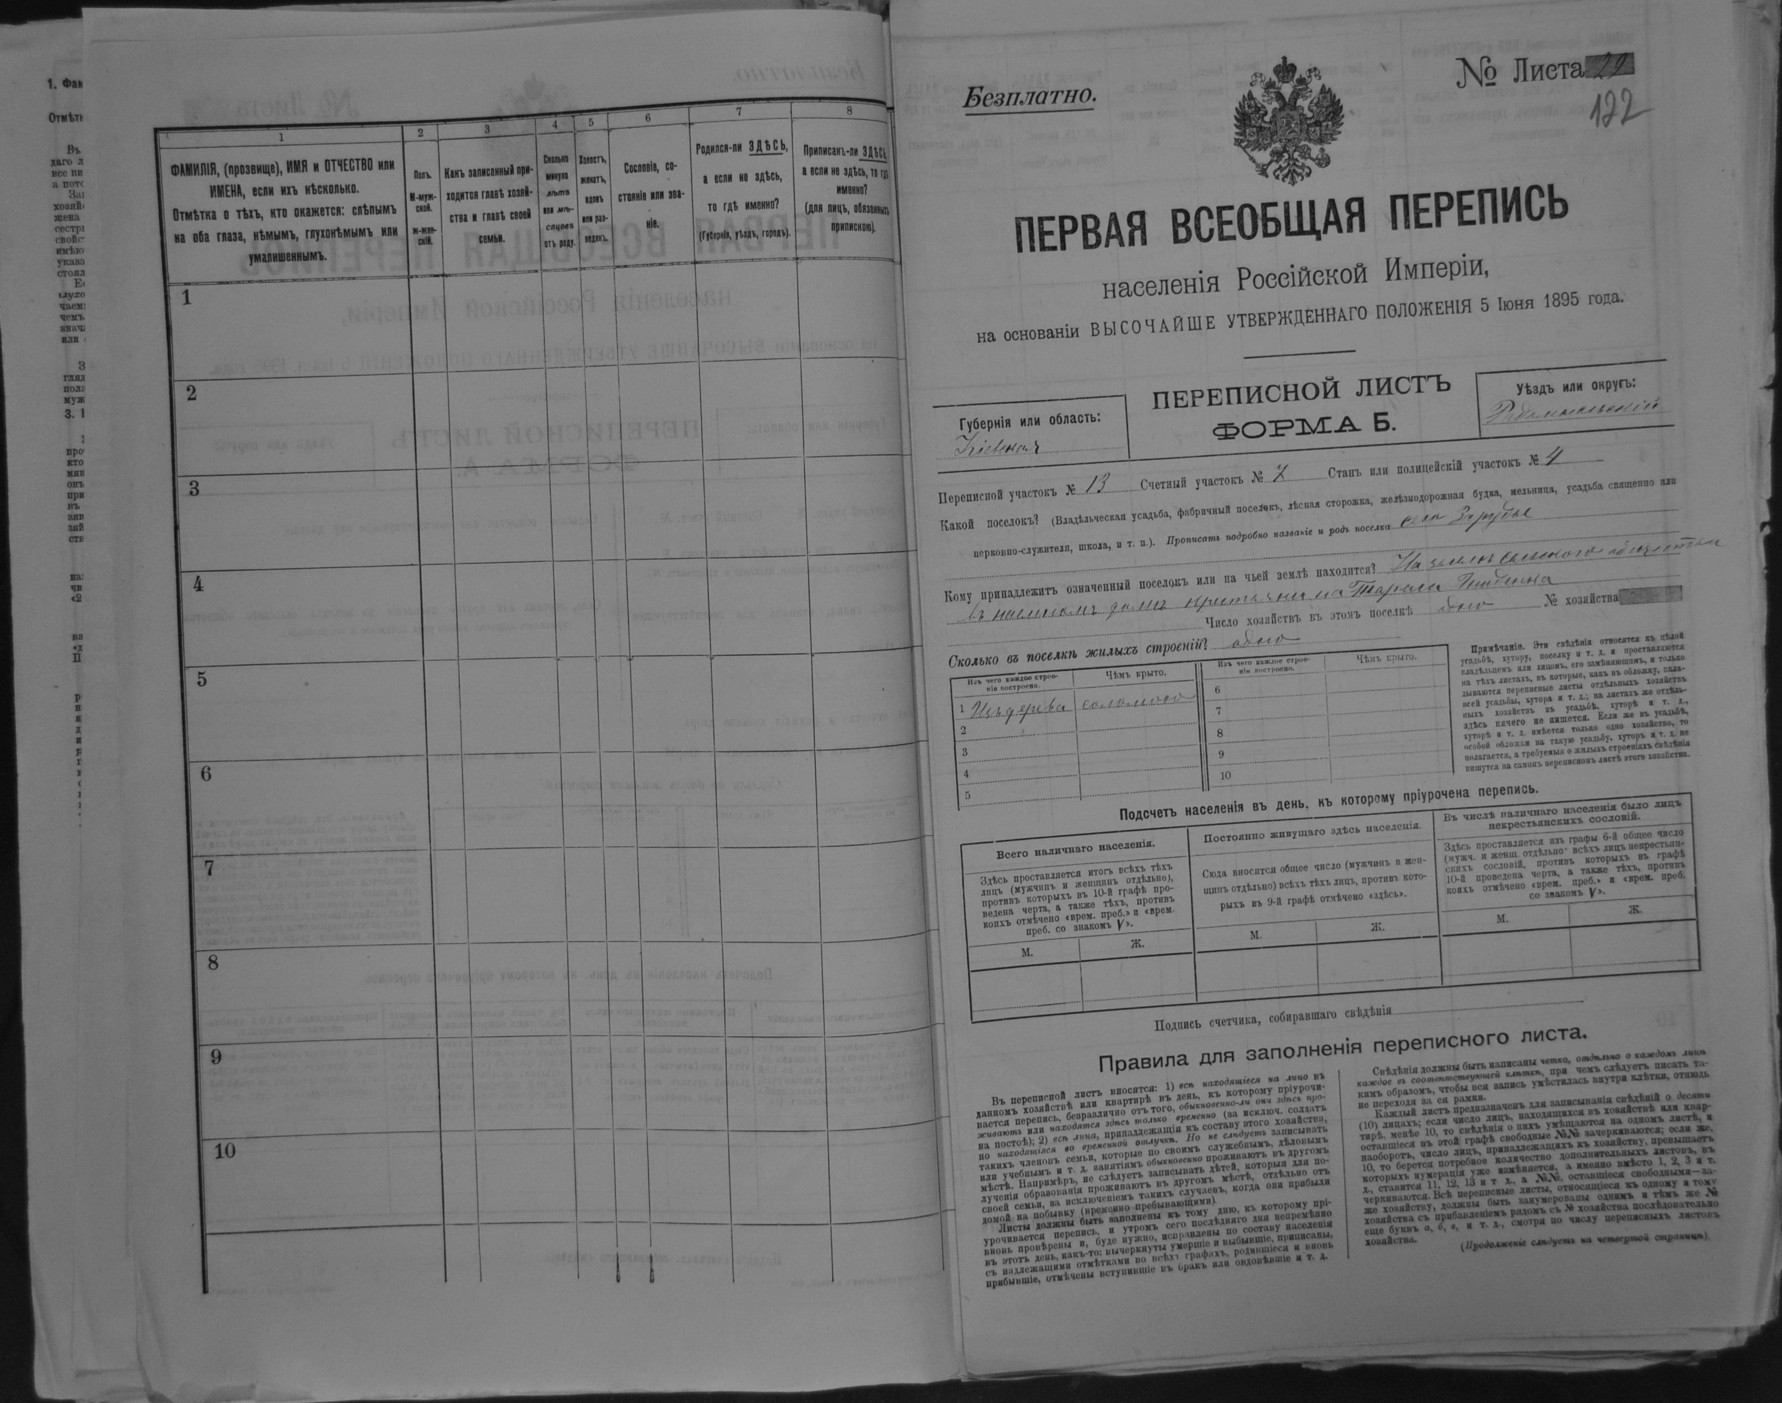 1. Фам
Отмѣтк
1
2
3
4
5
6
7
8
ФАМИЛІЯ, (прозвище), ИМЯ и ОТЧЕСТВО или
ИМЕНА, если ихъ нѣсколько.
Отмѣтка о тѣхъ, кто окажется: слѣпымъ
на оба глаза, нѣмымъ, глухонѣмымъ или
умалишеннымъ.
Полъ.
М-муж-
ской.
Ж-жен-
скій.
Какъ записанный при-
ходится главѣ хозяй-
ства и главѣ своей
семьи.
Сколько
минуло
лѣтъ
или мѣ-
сяцевъ
отъ роду.
Холостъ,
женатъ,
вдовъ
или раз-
веденъ.
Сословіе, со-
стояніе или зва-
ніе.
Родился-ли ЗДѢСЬ,
а если не здѣсь,
то гдѣ именно?
(Губернія, уѣздъ, городъ).
Приписанъ-ли ЗДѢСЬ,
а если не здѣсь, то гдѣ
именно?
(для лицъ, обязанныхъ
припискою).
1
2
3
4
5
6
7
8
9
10
Безплатно.
№ Листа 22
122
ПЕРВАЯ ВСЕОБЩАЯ ПЕРЕПИСЬ
населенія Россійской Имперіи,
на основаніи ВЫСОЧАЙШЕ УТВЕРЖДЕННАГО ПОЛОЖЕНІЯ 5 Іюня 1895 года.
Губернія или область:
Кіевская
ПЕРЕПИСНОЙ ЛИСТЪ
ФОРМА Б.
Уѣздъ или округъ:
Радомысльскій
Переписной участокъ № 13 Счетный участокъ № 7 Станъ или полицейскій участокъ № 4
Какой поселокъ? (Владѣльческая усадьба, фабричный поселокъ, лѣсная сторожка, желѣзнодорожная будка, мельница, усадьба священно или
церковно-служителя, школа, и т. п.). Прописать подробно названіе и родъ поселка село Зарубы
Кому принадлежитъ означенный поселокъ или на чьей землѣ находится? На землѣ сельского общества
въ наемномъ домѣ крестьянина Тараса
Число хозяйствъ въ этомъ поселкѣ одно № хозяйства
Сколько въ поселкѣ жилыхъ строеній? одно
Изъ чего каждое строе-
ніе построено.
Чѣмъ крыто.
1 Изъ дерева соломою
2
3
4
5
Изъ чего каждое строе-
ніе построено.
Чѣмъ крыто.
6
7
8
9
10
Примѣчаніе. Эти свѣдѣнія относятся къ цѣлой
усадьбѣ, хутору, поселку и т. д. и проставляются
владѣльцемъ или лицомъ, его замѣняющимъ, и только
на тѣхъ листахъ, въ которые, какъ въ обложку, вкла-
дываются переписные листы отдѣльныхъ хозяйствъ
всей усадьбы, хутора и т. д.; на листахъ же отдѣль-
ныхъ хозяйствъ въ усадьбѣ, хуторѣ и т. д.,
здѣсь ничего не пишется. Если же въ усадьбѣ,
хуторѣ и т. д. имѣется только одно хозяйство, то
особой обложки на такую усадьбу, хуторъ и т. д. не
полагается, а требуемыя о жилыхъ строеніяхъ свѣдѣнія
пишутся на самомъ переписномъ листѣ этого хозяйства.
Подсчетъ населенія въ день, къ которому пріурочена перепись.
Всего наличнаго населенія.
Здѣсь проставляется итогъ всѣхъ тѣхъ
лицъ (мужчинъ и женщинъ отдѣльно),
противъ которыхъ въ 10-й графѣ про-
ведена черта, а также тѣхъ, противъ
коихъ отмѣчено «врем. преб.» и «врем.
преб. со знакомъ V».
М.
Ж.
Постоянно живущаго здѣсь населенія.
Сюда вносится общее число (мужчинъ и жен-
щинъ отдѣльно) всѣхъ тѣхъ лицъ, противъ кото-
рыхъ въ 9-й графѣ отмѣчено «здѣсь».
М.
Ж.
Въ числѣ наличнаго населенія было лицъ
некрестьянскихъ сословій.
Здѣсь проставляется изъ графы 6-й общее число
(мужч. и женщ. отдѣльно) всѣхъ лицъ некрестьян-
скихъ сословій, противъ которыхъ въ графѣ
10-й проведена черта, а также тѣхъ, противъ
коихъ отмѣчено «врем. преб.» и «врем. преб.
со знакомъ V».
М.
Ж.
Подпись счетчика, собиравшаго свѣдѣнія
Правила для заполненія переписного листа.
Въ переписной листъ вносятся: 1) всѣ находящіеся на лицо въ
данномъ хозяйствѣ или квартирѣ въ день, къ которому пріурочи-
вается перепись, безразлично отъ того, обыкновенно-ли они здѣсь про-
живаютъ или находятся здѣсь только временно (за исключ. солдатъ
на постоѣ); 2) всѣ лица, принадлежащія къ составу этого хозяйства,
но находящіяся во временной отлучкѣ. Но не слѣдуетъ записывать
такихъ членовъ семьи, которые по своимъ служебнымъ, дѣловымъ
или учебнымъ и т. д. занятіямъ обыкновенно проживаютъ въ другомъ
мѣстѣ. Напримѣръ, не слѣдуетъ записывать дѣтей, которыя для по-
лученія образованія проживаютъ въ другомъ мѣстѣ, отдѣльно отъ
своей семьи, за исключеніемъ такихъ случаевъ, когда они прибыли
домой на побывку (временно-пребывающими).
Листы должны быть заполнены къ тому дню, къ которому прі-
урочивается перепись, и утромъ сего послѣдняго дня непремѣнно
вновь провѣрены и, буде нужно, исправлены по составу населенія
въ этотъ день, какъ-то: вычеркнуты умершіе и выбывшіе, приписаны,
съ надлежащими отмѣтками во всѣхъ графахъ, родившіеся и вновь
прибывшіе, отмѣчены вступившіе въ бракъ или овдовѣвшіе и т. д.
Свѣдѣнія должны быть написаны четко, отдѣльно о каждомъ лицѣ
каждое въ соотвѣтствующей клѣткѣ, при чемъ слѣдуетъ писать та-
кимъ образомъ, чтобы вся запись умѣстилась внутри клѣтки, отнюдь
не переходя за ея рамки.
Каждый листъ предназначенъ для записыванія свѣдѣній о десяти
(10) лицахъ; если число лицъ, находящихся въ хозяйствѣ или квар-
тирѣ, менѣе 10, то свѣдѣнія о нихъ умѣщаются на одномъ листѣ, и
оставшіеся въ этой графѣ свободные №№ зачеркиваются; если же,
наоборотъ, число лицъ, принадлежащихъ къ хозяйству, превышаетъ
10, то берется потребное количество дополнительныхъ листовъ, въ
которыхъ нумерація уже измѣняется, а именно вмѣсто 1, 2, 3 и т.
д., ставится 11, 12, 13 и т д., а №№, оставшіеся свободными—за-
черкиваются. Всѣ переписные листы, относящіеся къ одному и тому
же хозяйству, должны быть занумерованы однимъ и тѣмъ же №
хозяйства съ прибавленіемъ рядомъ съ № хозяйства послѣдовательно
еще буквъ а, б, в, и т. д., смотря по числу переписныхъ листовъ
хозяйства.
(Продолженіе слѣдуетъ на четвертой страницѣ).